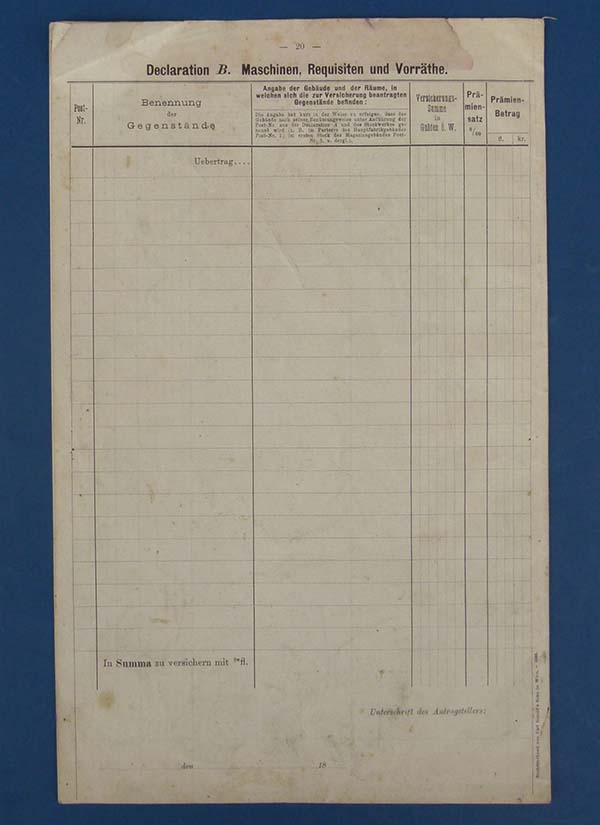 — 20 —
Declaration B. Maschinen, Requisiten und Vorräthe.
Post-
Nr.
Benennung
der
Gegenstände
Angabe der Gebäude und der Räume, in
welchen sich die zur Versicherung beantragten
Gegenstände befinden:
Die Angabe hat kurz in der Weise zu erfolgen, dass das
Gebäude nach seiner Benützungsweise unter Anführung der
Post-No. aus der Declaration A und des Stockwerkes ge-
nannt wird (z. B. im Parterre des Hauptfabrikgebäudes
Post-No. 1; im ersten Stock des Magazinsgebäudes Post-
No. 5, u. dergl.).
Versicherungs-
Summe
in
Gulden ö. W.
Prä-
mien-
satz
0/00
Prämien-
Betrag
fl. kr.
Uebertrag....
In Summa zu versichern mit fl.
Unterschrift des Antragstellers:
den 18